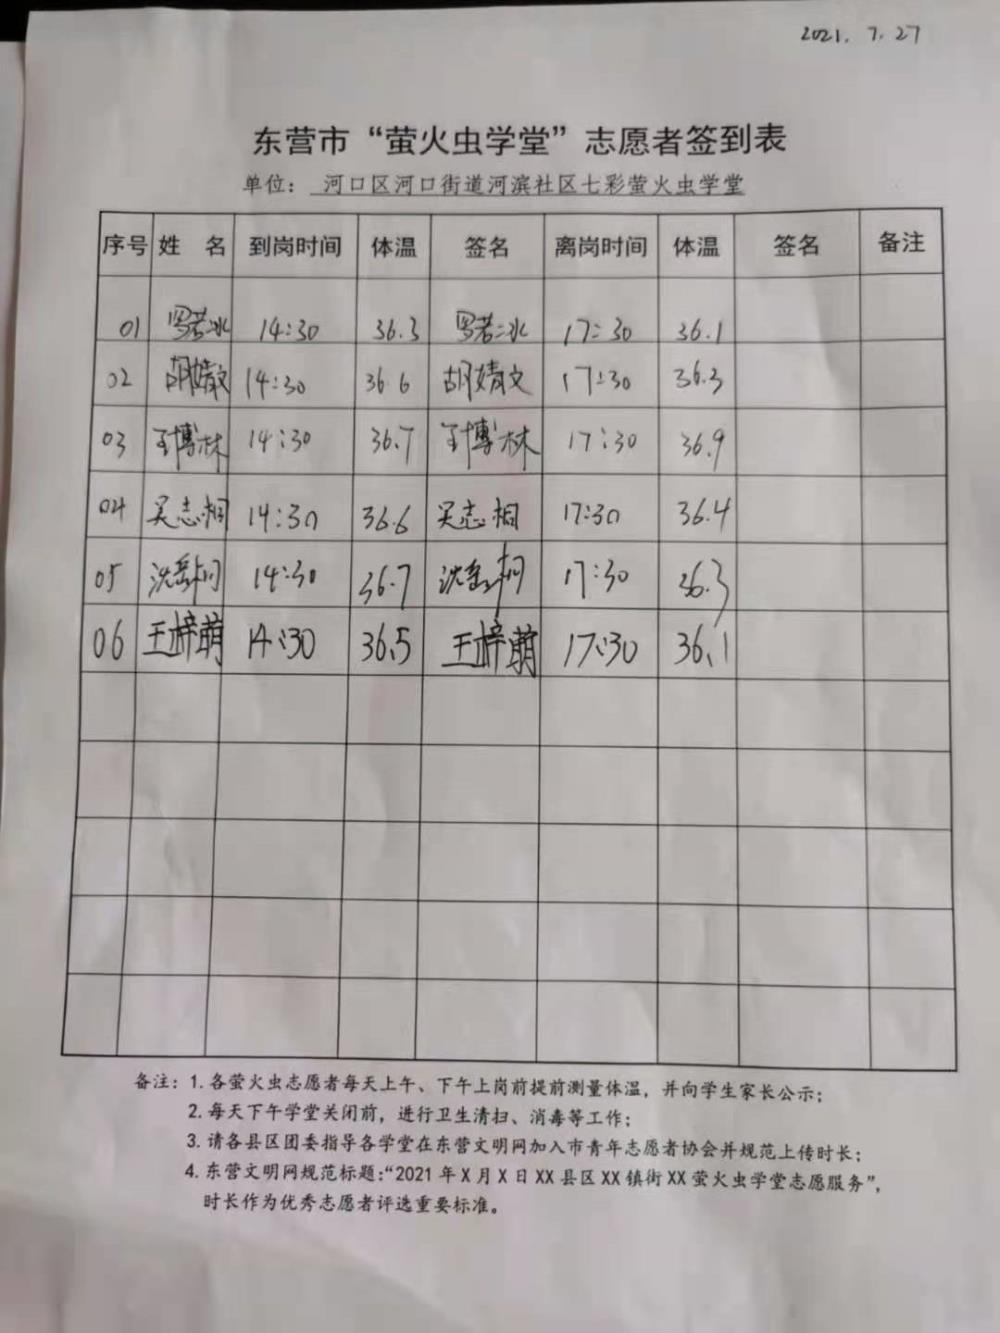 2021. 7. 27
东营市“萤火虫学堂”志愿者签到表
单位： 河口区河口街道河滨社区七彩萤火虫学堂
序号 姓 名 到岗时间 体温 签名 离岗时间 体温 签名 备注
01 罗若冰 14:30 36.3 罗若冰 17:30 36.1
02 胡婧文 14:30 36.6 胡婧文 17:30 36.3
03 博林 14:30 36.7 博林 17:30 36.9
04 吴志桐 14:30 36.6 吴志桐 17:30 36.4
05 沈 14:30 36.7 沈 17:30 36.3
06 王梓萌 14:30 36.5 王梓萌 17:30 36.1
备注：1. 各萤火虫志愿者每天上午、下午上岗前提前测量体温，并向学生家长公示；
2. 每天下午学堂关闭前，进行卫生清扫、消毒等工作；
3. 请各县区团委指导各学堂在东营文明网加入市青年志愿者协会并规范上传时长；
4. 东营文明网规范标题：“2021 年 X 月 X 日 XX 县区 XX 镇街 XX 萤火虫学堂志愿服务”，
时长作为优秀志愿者评选重要标准。